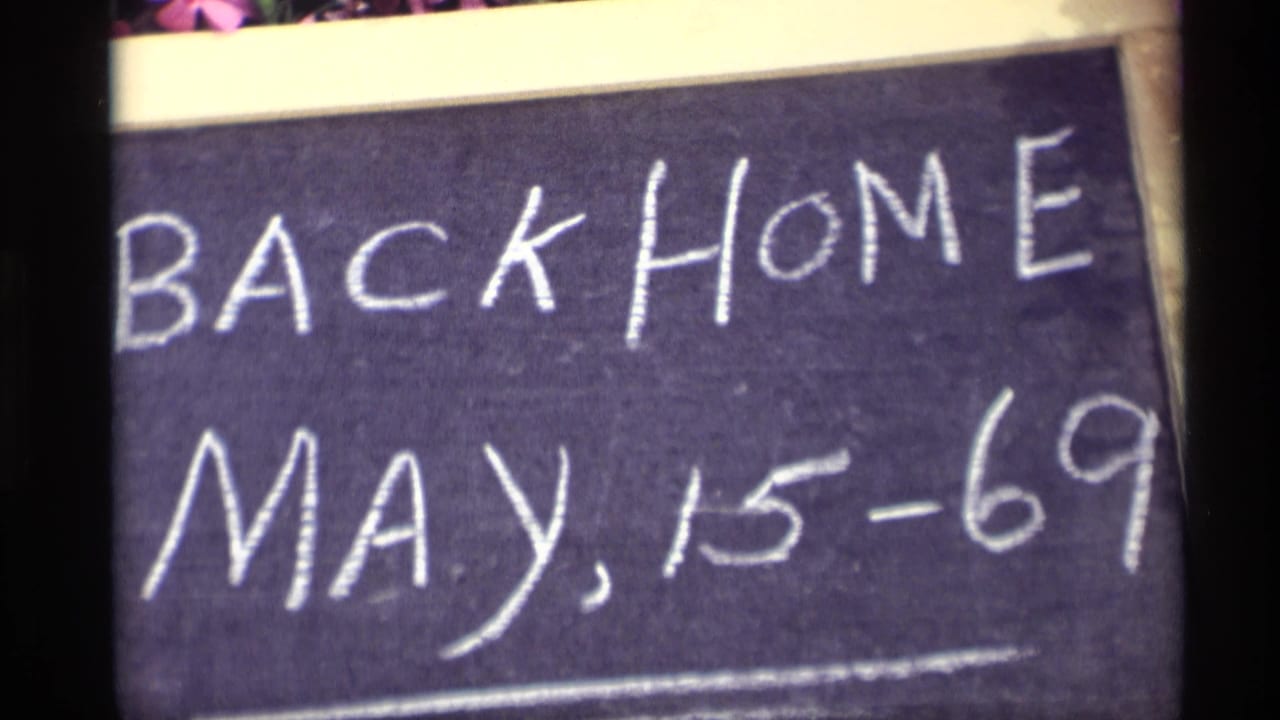 BACK HOME
MAY, 15-69